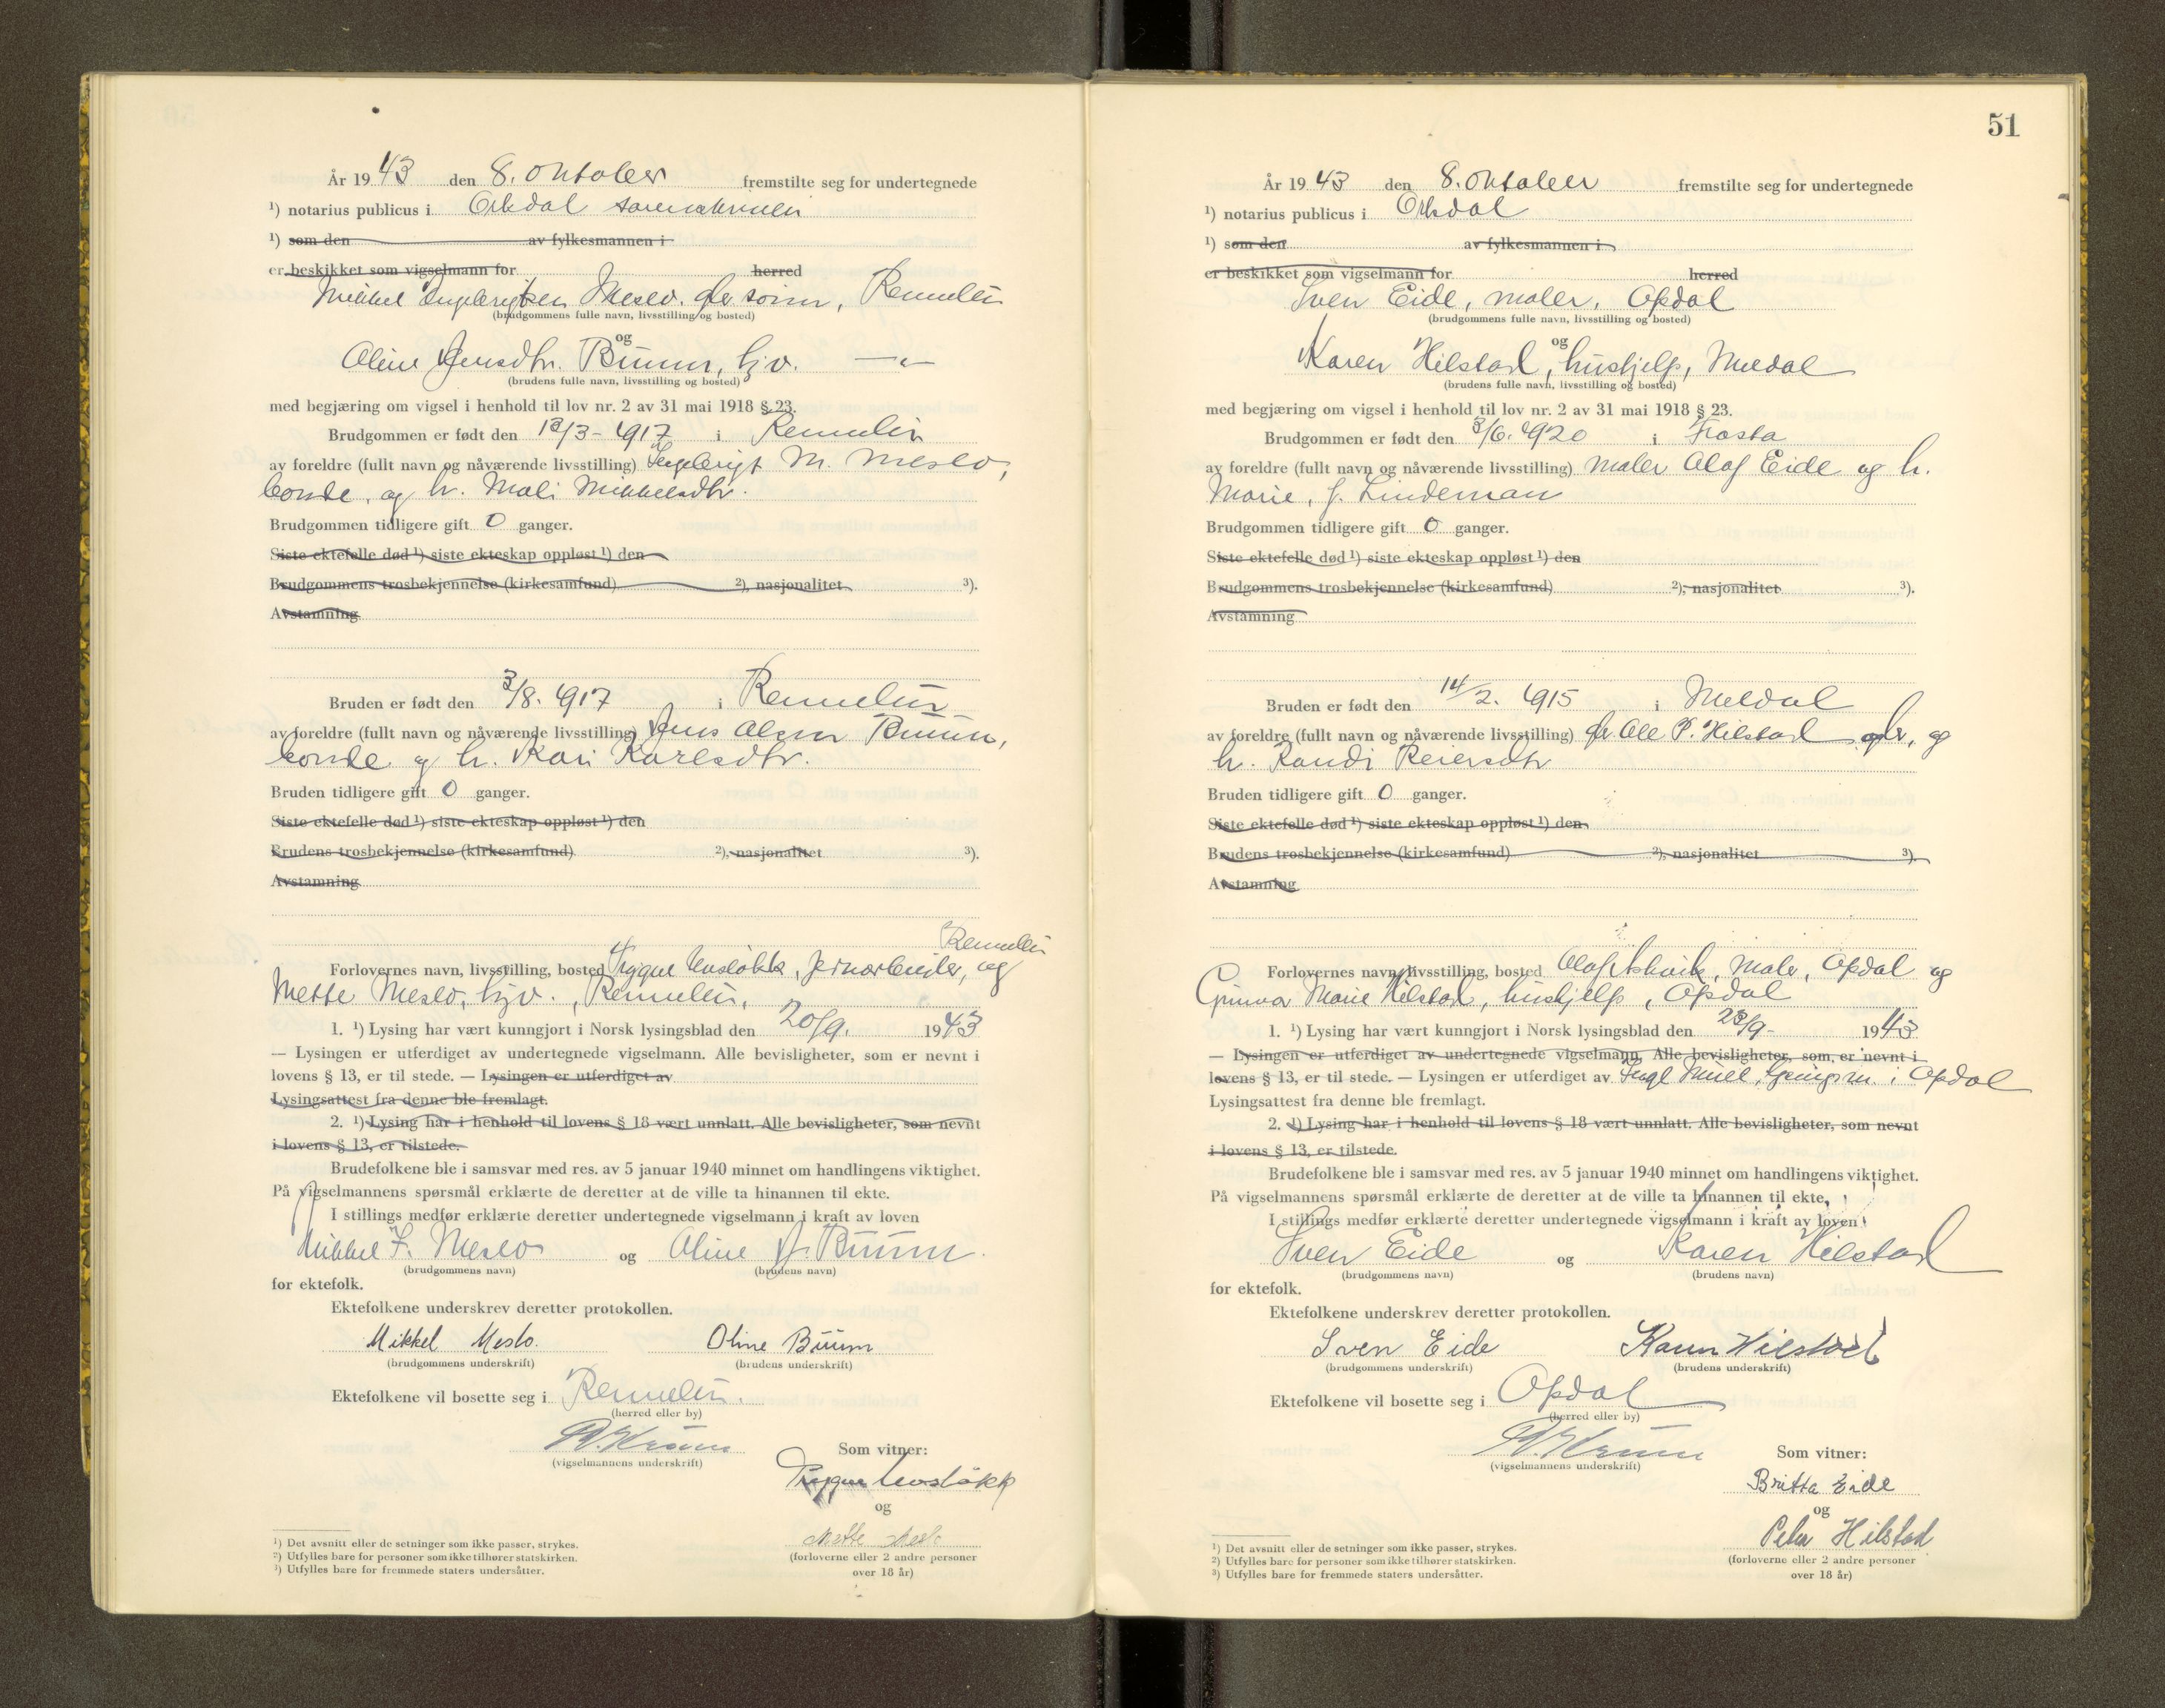 År 1943 den 8. oktober fremstilte seg for undertegnede
¹) notarius publicus i Orkdal sorenskriveri
¹) som den av fylkesmannen i
er beskikket som vigselmann for herred
Mikkel Ingebrigtsen Meslo, Rennebu
(brudgommens fulle navn, livsstilling og bosted)
og
Oline Jensdtr. Buum, hjv. — " —
(brudens fulle navn, livsstilling og bosted)
med begjæring om vigsel i henhold til lov nr. 2 av 31 mai 1918 § 23.
Brudgommen er født den /3- 1917 i Rennebu
av foreldre (fullt navn og nåværende livsstilling) Ingebrigt M. Meslo,
bonde, og h. Mali Mikkelsdtr.
Brudgommen tidligere gift 0 ganger.
Siste ektefelle død ¹) siste ekteskap oppløst ¹) den
Brudgommens trosbekjennelse (kirkesamfund) ²), nasjonalitet ³).
Avstamning
Bruden er født den 3/8. 1917 i Rennebu
av foreldre (fullt navn og nåværende livsstilling) Jens Olsen Buum,
bonde og h. Kari Karlsdtr.
Bruden tidligere gift 0 ganger.
Siste ektefelle død ¹) siste ekteskap oppløst ¹) den
Brudens trosbekjennelse (kirkesamfund) ²), nasjonalitet ³).
Avstamning
Rennebu
Forlovernes navn, livsstilling, bosted Trygve Uvsløkk, jernarbeider, og
Mette Meslo, hjv., Rennebu,
1. ¹) Lysing har vært kunngjort i Norsk lysingsblad den 20/9. 1943
— Lysingen er utferdiget av undertegnede vigselmann. Alle bevisligheter, som er nevnt i
lovens § 13, er til stede. — Lysingen er utferdiget av
Lysingsattest fra denne ble fremlagt.
2. ¹) Lysing har i henhold til lovens § 18 vært unnlatt. Alle bevisligheter, som nevnt
i lovens § 13, er tilstede.
Brudefolkene ble i samsvar med res. av 5 januar 1940 minnet om handlingens viktighet.
På vigselmannens spørsmål erklærte de deretter at de ville ta hinannen til ekte.
I stillings medfør erklærte deretter undertegnede vigselmann i kraft av loven
Mikkel I. Meslo og Oline J. Buum.
(brudgommens navn) (brudens navn)
for ektefolk.
Ektefolkene underskrev deretter protokollen.
Mikkel Meslo. Oline Buum
(brudgommens underskrift) (brudens underskrift)
Ektefolkene vil bosette seg i Rennebu.
(herred eller by)
Som vitner:
(vigselmannens underskrift)
Trygve Uvsløkk
og
Mette Meslo
(forloverne eller 2 andre personer
over 18 år)
¹) Det avsnitt eller de setninger som ikke passer, strykes.
²) Utfylles bare for personer som ikke tilhører statskirken.
³) Utfylles bare for fremmede staters undersåtter.
51
År 1943 den 8. oktober fremstilte seg for undertegnede
¹) notarius publicus i Orkdal
¹) som den av fylkesmannen i
er beskikket som vigselmann for herred
Sven Eide, maler, Opdal
(brudgommens fulle navn, livsstilling og bosted)
og
Karen Hilstad, hushjelp, Meldal
(brudens fulle navn, livsstilling og bosted)
med begjæring om vigsel i henhold til lov nr. 2 av 31 mai 1918 § 23.
Brudgommen er født den 3/6. 1920 i Frosta
av foreldre (fullt navn og nåværende livsstilling) maler Olaf Eide og h.
Marie, f. Lindeman
Brudgommen tidligere gift 0 ganger.
Siste ektefelle død ¹) siste ekteskap oppløst ¹) den
Brudgommens trosbekjennelse (kirkesamfund) ²), nasjonalitet ³).
Avstamning
Bruden er født den 14/2. 1915 i Meldal
av foreldre (fullt navn og nåværende livsstilling) Ole P. Hilstad og
h. Randi Reiersdtr
Bruden tidligere gift 0 ganger.
Siste ektefelle død ¹) siste ekteskap oppløst ¹) den
Brudens trosbekjennelse (kirkesamfund) ²), nasjonalitet ³).
Avstamning
Forlovernes navn, livsstilling, bosted Olaf maler, Opdal og
Gunvor Marie Hilstad, hushjelp, Opdal
1. ¹) Lysing har vært kunngjort i Norsk lysingsblad den 23/9- 1943
— Lysingen er utferdiget av undertegnede vigselmann. Alle bevisligheter, som er nevnt i
lovens § 13, er til stede. — Lysingen er utferdiget av i Opdal
Lysingsattest fra denne ble fremlagt.
2. ¹) Lysing har i henhold til lovens § 18 vært unnlatt. Alle bevisligheter, som nevnt
i lovens § 13, er tilstede.
Brudefolkene ble i samsvar med res. av 5 januar 1940 minnet om handlingens viktighet.
På vigselmannens spørsmål erklærte de deretter at de ville ta hinannen til ekte.
I stillings medfør erklærte deretter undertegnede vigselmann i kraft av loven
Sven Eide og Karen Hilstad
(brudgommens navn) (brudens navn)
for ektefolk.
Ektefolkene underskrev deretter protokollen.
Sven Eide Karen Hilstad
(brudgommens underskrift) (brudens underskrift)
Ektefolkene vil bosette seg i Opdal
(herred eller by)
Som vitner:
(vigselmannens underskrift)
Britta Eide
og
Peder Hilstad
(forloverne eller 2 andre personer
over 18 år)
¹) Det avsnitt eller de setninger som ikke passer, strykes.
²) Utfylles bare for personer som ikke tilhører statskirken.
³) Utfylles bare for fremmede staters undersåtter.